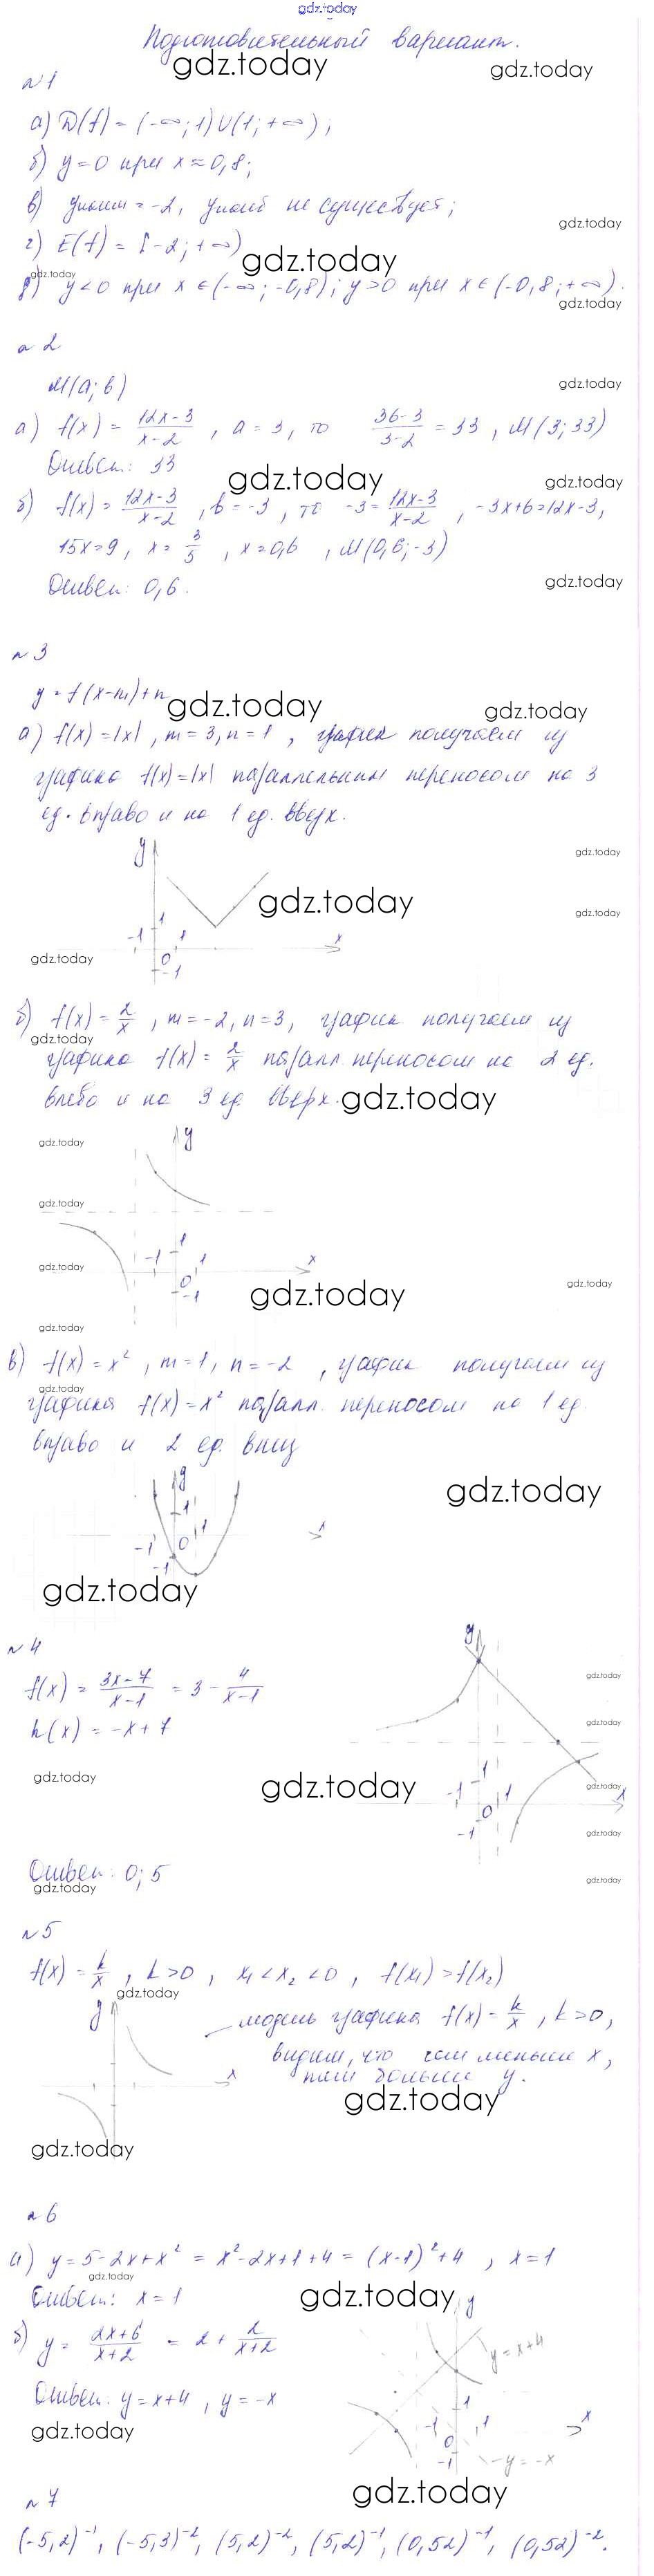 gdz.today
Подготовительный вариант.
gdz.today
gdz.today
№1
а) D(f) = (-∞; 1) U (1; +∞);
б) y = 0 при x ≈ 0,8;
в) yнаим = -2, yнаиб не существует;
gdz.today
г) E(f) = [-2; +∞)
gdz.today
gdz.today
д) y < 0 при x ∈ (-∞; -0,8); y > 0 при x ∈ (-0,8; +∞).
gdz.today
№2
M(a; b)
gdz.today
а) f(x) = 12x-3/x-2, a = 3, то 36-3/3-2 = 33, M(3; 33)
Ответ: 33
gdz.today
gdz.today
б) f(x) = 12x-3/x-2, b = -3, то -3 = 12x-3/x-2, -3x+6=12x-3,
15x=9, x = 3/5, x = 0,6, M(0,6; -3)
Ответ: 0,6.
gdz.today
№3
y = f(x-m)+n
gdz.today
gdz.today
а) f(x) = |x|, m = 3, n = 1, график получаем из
графика f(x) = |x| параллельным переносом на 3
ед. вправо и на 1 ед. вверх.
y
gdz.today
gdz.today
gdz.today
1
-1 0 1 x
-1
gdz.today
б) f(x) = 2/x, m = -2, n = 3, график получаем из
gdz.today
графика f(x) = 2/x паралл. переносом на 2 ед.
влево и на 3 ед. вверх.
gdz.today
y
gdz.today
gdz.today
gdz.today
1
-1 0 1 x
-1
gdz.today
gdz.today
gdz.today
в) f(x) = x², m = 1, n = -2, график получаем из
gdz.today
графика f(x) = x² паралл. переносом на 1 ед.
вправо и 2 ед. вниз
y
gdz.today
1
-1 0 1 x
-1
gdz.today
№4
y
f(x) = 3x-7/x-1 = 3 - 4/x-1
gdz.today
h(x) = -x + 7
gdz.today
gdz.today
gdz.today
gdz.today
1
-1 0 1 x
-1
gdz.today
Ответ: 0; 5
gdz.today
gdz.today
№5
f(x) = k/x, k > 0, x₁ < x₂ < 0, f(x₁) > f(x₂)
gdz.today
y
x
модель графика f(x) = k/x, k > 0,
видим, что чем меньше x,
тем больше y.
gdz.today
gdz.today
№6
а) y = 5 - 2x + x² = x² - 2x + 1 + 4 = (x-1)² + 4, x = 1
gdz.today
Ответ: x = 1
gdz.today
y
б) y = 2x+6/x+2 = 2 + 2/x+2
y = x+4
Ответ: y = x+4, y = -x
1
-1 0 1 x
-1
y = -x
gdz.today
gdz.today
№7
(-5,2)⁻¹, (-5,3)⁻², (5,2)⁻², (5,2)⁻¹, (0,52)⁻¹, (0,52)⁻².